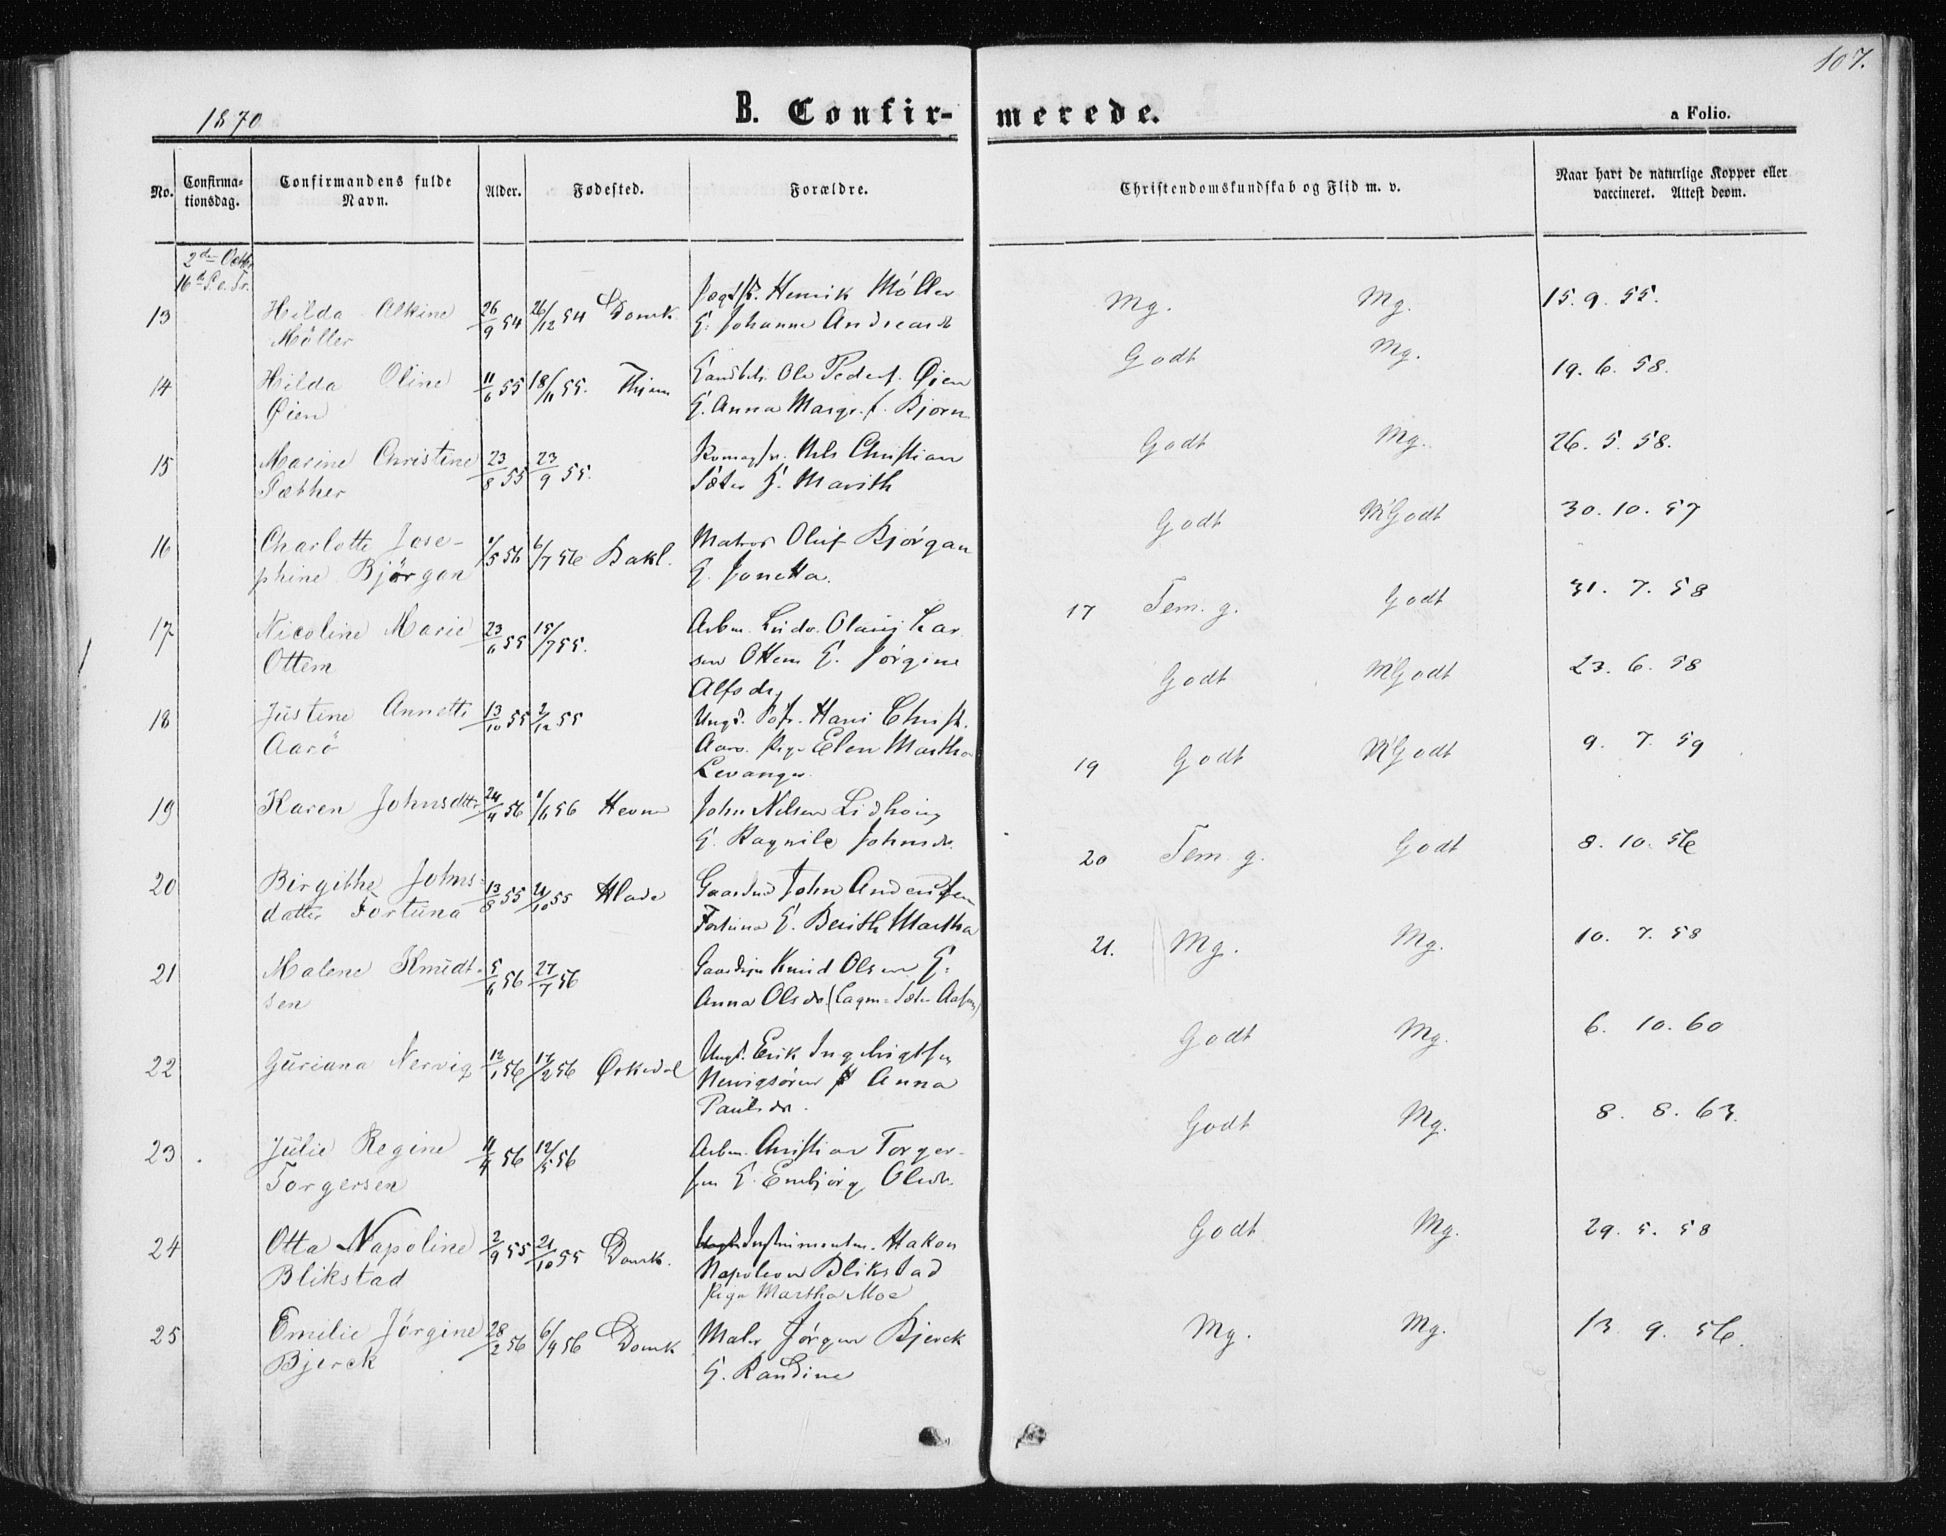 107.
1870
B. Confirmerede.
a Folio.
No.
Confirma-
tionsdag.
Confirmandens fulde
Navn.
Alder.
Fødested.
Forældre.
Christendomskundskab og Flid m. v.
Naar havt de naturlige Kopper eller
vaccineret. Attest derom.
2den Octbr
16d P. e. Tr.
13 Hilda Alkine 26/9 54 26/12 54 Domk. Henrik Möller Mg. Mg. 15. 9. 55.
Möller G. Johanne Andreasd
14 Hilda Oline 11/6 55 18/11 55. Ole Peders. Øien Godt Mg. 19. 6. 58.
Øien G. Anna Margr. f. Bjørn
15 Marine Christine 23/8 55 23/9 55. Nils Christian Godt Mg. 26. 5. 58.
Sæther Sæter G. Marith
16 Charlotte Jose- 1/5 56 6/7 56 Bakl. Matros Oluf Bjørgan Godt MGodt 30. 10. 57
phine Bjørgan G. Jonetta.
17 Nicoline Marie 23/6 55 15/7 55. Arbm. Ludv. Olaus Lar 17 Tem. g. Godt 31. 7. 58
Ottem sen Ottem G. Jørgine
Alfsdr
18 Justine Annette 13/10 55 2/12 55 Ungk. Hans Christ. Godt MGodt 23. 6. 58
Aarö Aarö. Pige Elen Martha
Levanger
19 Karen Johnsdttr 24/4 56 1/6 56 Hevne John Nilsen Lidhoug 19 Godt MGodt 9. 7. 59
G. Ragnile Johnsdr.
20 Birgithe Johns- 13/8 55 21/10 55 Hlade Gaardm John Andersen 20 Tem. g. Godt 8. 10. 56
datter Fortuna Fortuna G. Berith Martha
21 Malene Knudt- 5/6 56 27/7 56 Knud Olsen G. 21. Mg. Mg. 10. 7. 58
sen Anna Olsdr.
22 Guriana Nervig 12/1 56 17/2 56 Ørkedal Ungk. Erik Ingebrigtsen Godt Mg. 6. 10. 60
Nervigsøren Anna
Paulsdr.
23 Julie Regine 11/4 56 12/5 56 Arbm. Christian Torger- Godt Mg. 8. 8. 63.
Torgersen sen G. Embjørg Olsdr.
24 Otta Napoline 2/9 55 21/10 55 Domk. Instrumentm. Hakon Godt Mg. 29. 5. 58
Blikstad Napoleon Blikstad
Pige Martha Moe
25 Emilie Jörgine 28/2 56 6/4 56 Domk Maler Jørgen Bjerck Mg. Mg. 13. 9. 56.
Bjerck G. Randine